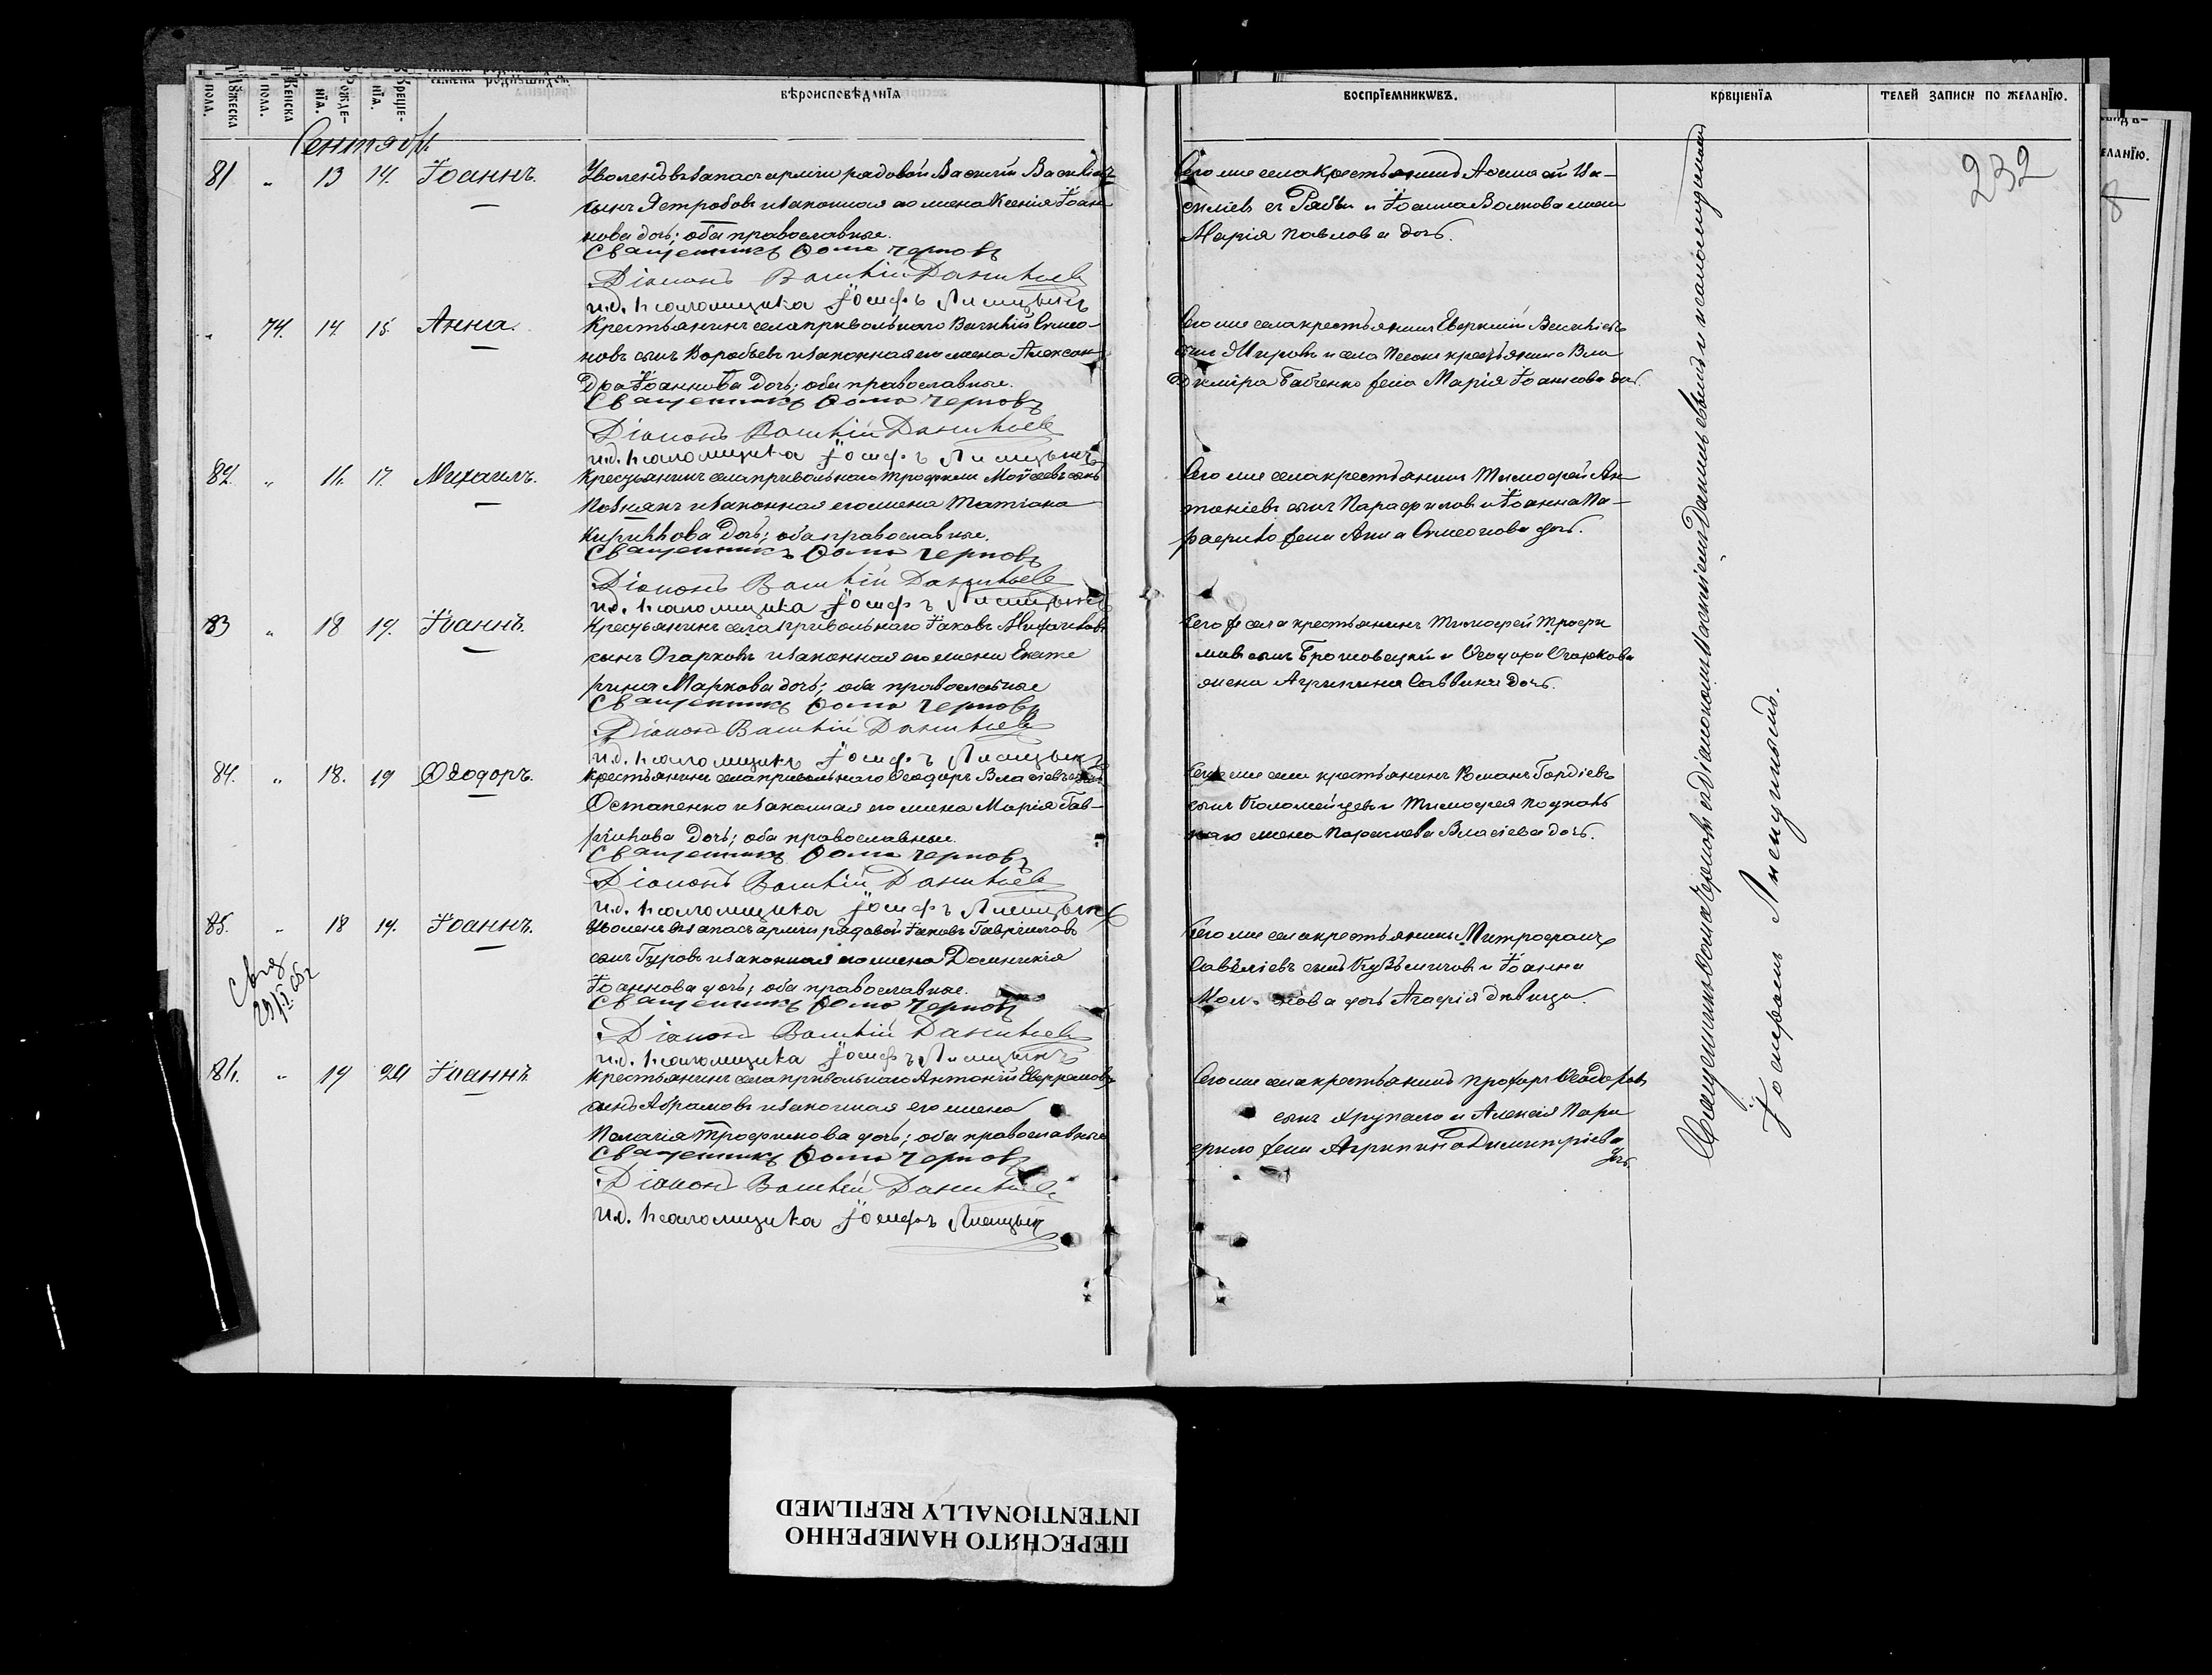 Мужеска пола.
Женска пола.
Рожденїя.
Крещенїя.
имена родившихся
вѣроисповѣданїя
воспрїемникωвъ.
крещенїя
телей записи по желанїю.
еланїю.
Сентябрь
232
81 " 13 14. Іоаннъ.
Уволен. въ запасъ армiи рядовой Василiй Василiевъ
сынъ Ястребовъ и законная его жена Ксенiя Іоан-
нова дочь; оба православные.
Священникъ Ѳома Черновъ
Дiаконъ Василiй Данильевъ
и.д. псаломщика Іосифъ Лисицынъ
Того же села крестьянинъ
Марiя Павлова дочь.
" 74. 14 15. Анна.
Крестьянинъ села Привольнаго Василiй Симео-
новъ сынъ Воробьевъ и законная его жена Алексан-
дра Іоаннова дочь; оба православные.
Священникъ Ѳома Черновъ
Дiаконъ Василiй Данильевъ
и.д. псаломщика Іосифъ Лисицынъ
Того же села крестьянинъ Василiевъ
сынъ и села Пески крестьянина Вла-
димiра жена Марiя Іоаннова дочь.
82. " 16. 17. Михаилъ.
Крестьянинъ села Привольнаго Трофимъ Моѵсеевъ сынъ
Познякъ и законная его жена Татiана
Кириллова дочь; оба православные.
Священникъ Ѳома Черновъ
Дiаконъ Василiй Данильевъ
и.д. псаломщика Іосифъ Лисицынъ
Того же села крестьянинъ Тимофей Ан-
тонiевъ сынъ и Іоанна Па-
жена Анна Симеонова дочь.
83 " 18 19. Іоаннъ.
Крестьянинъ села Привольнаго Іаковъ Михаиловъ
сынъ Огарковъ и законная его жена Екате-
рина Маркова дочь; оба православные
Священникъ Ѳома Черновъ
Дiаконъ Василiй Данильевъ
и.д. псаломщика Іосифъ Лисицынъ
Того же села крестьянинъ Тимофей Трофи-
мовъ сынъ и Ѳеодора Огаркова
жена Агрипина Саввина дочь.
84. " 18. 19 Ѳеодоръ.
Крестьянинъ села Привольнаго Ѳеодоръ Власiевъ сынъ
Остапенко и законная его жена Марiя Гав-
рiилова дочь; оба православные.
Священникъ Ѳома Черновъ
Дiаконъ Василiй Данильевъ
и.д. псаломщика Іосифъ Лисицынъ
Того же села крестьянинъ Романъ Гордiевъ
сынъ Коломейцевъ и Тимофея
жена Параскева Власiева дочь.
85. " 18 19. Іоаннъ.
Уволен. въ запасъ армiи рядовой Іаковъ Гаврiиловъ
сынъ Гуровъ и законная его жена Домникiя
Іоаннова дочь; оба православные.
Священникъ Ѳома Черновъ
Дiаконъ Василiй Данильевъ
и.д. псаломщика Іосифъ Лисицынъ
Того же села крестьянинъ Митрофанъ
Савелiевъ сынъ Кузьмичовъ и Іоанна
дочь Агафiя девица.
86. " 19 20 Іоаннъ.
Крестьянинъ села Привольнаго Антонiй
сынъ Абрамовъ и законная его жена
Пелагiя Трофимова дочь; оба православные
Священникъ Ѳома Черновъ
Дiаконъ Василiй Данильевъ
и.д. псаломщика Іосифъ Лисицынъ
Того же села крестьянинъ Прохоръ Ѳеодоровъ
сынъ Хрупало и Алексiя Пари-
жена Агрипина Димитрiева
дочь.
Священникъ Ѳома Черновъ съ Дiакономъ Василiемъ Данильевымъ и псаломщикомъ
Іосифомъ Лисицынымъ.
ПЕРЕСНЯТО НАМЕРЕННО
INTENTIONALLY REFILMED